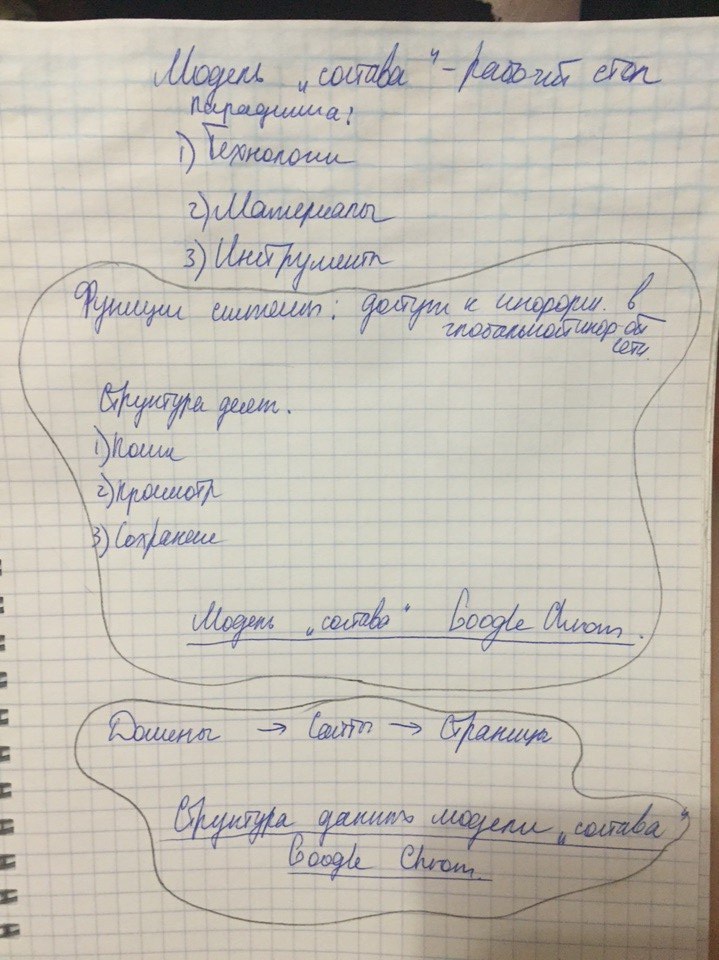 Модель „состава“ - рабочий стол
Парадигма:
1) Технологии
2) Материалы
3) Инструменты
Функции системы: доступ к информ. в
глобальной инф
сети.
Структура деят.
1) Поиск
2) Просмотр
3) Сохранение
Модель „состава“ Google Chrom.
Домены → Сайты → Страницы
Структура данных модели „состава“
Google Chrom.